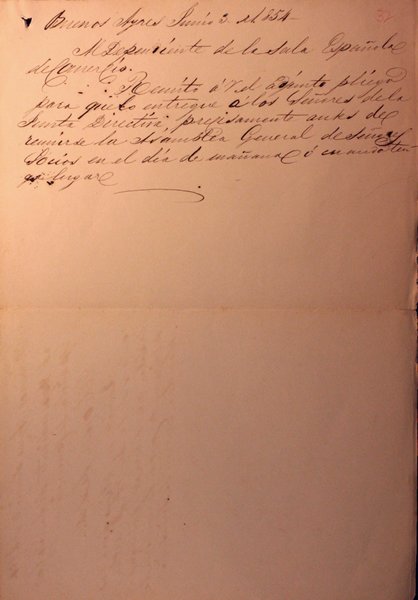 Buenos Ayres Junio 3 de 1854
Al Dependiente de la Sala Española
de Comercio.
Remito á V. el adjunto pliego
para que lo entregue á los Señores de la
Junta Directiva, presisamente antes de
reunirse la Asamblea General de Señores
Socios en el dia de mañana ó cuando ten
ga lugar